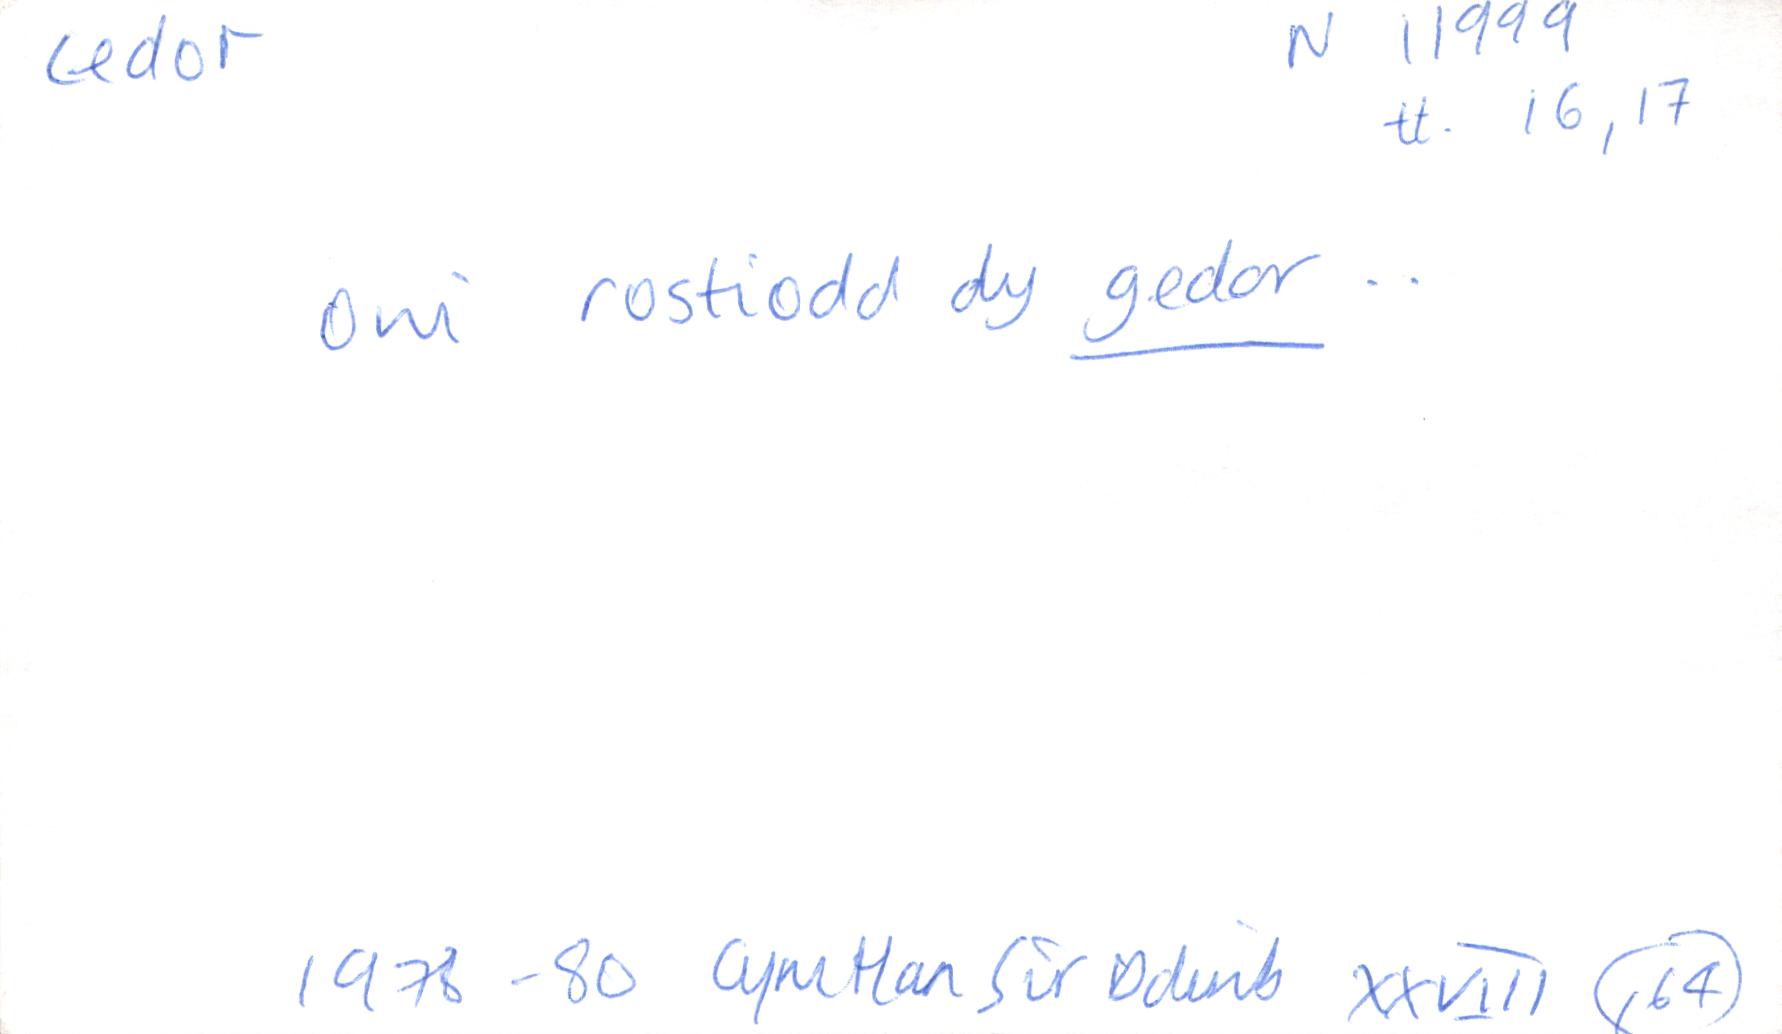 cedor
N 11999
tt. 16, 17
oni rostiodd dy gedor ..
1978-80 Cym Han Sir Ddinb XXVIII